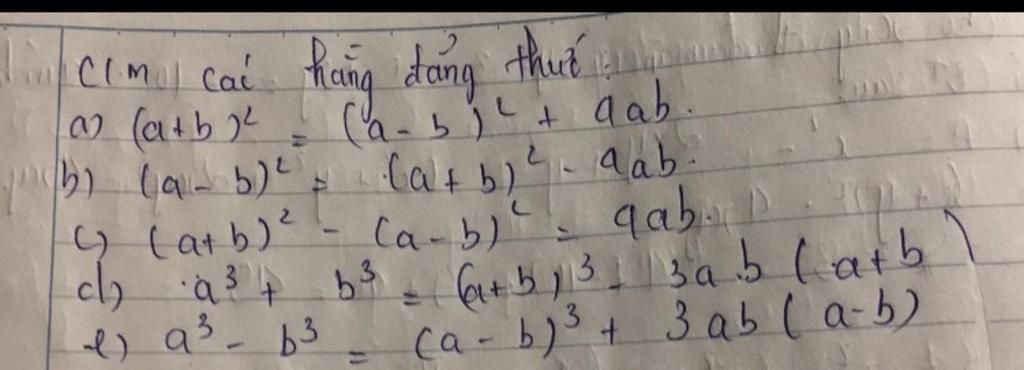 C/m các hằng đẳng thức:
a) (a+b)² = (a-b)² + 4ab.
b) (a-b)² = (a+b)² - 4ab.
c) (a+b)² - (a-b)² = 4ab.
d) a³ + b³ = (a+b)³ - 3ab(a+b)
e) a³ - b³ = (a-b)³ + 3ab(a-b)